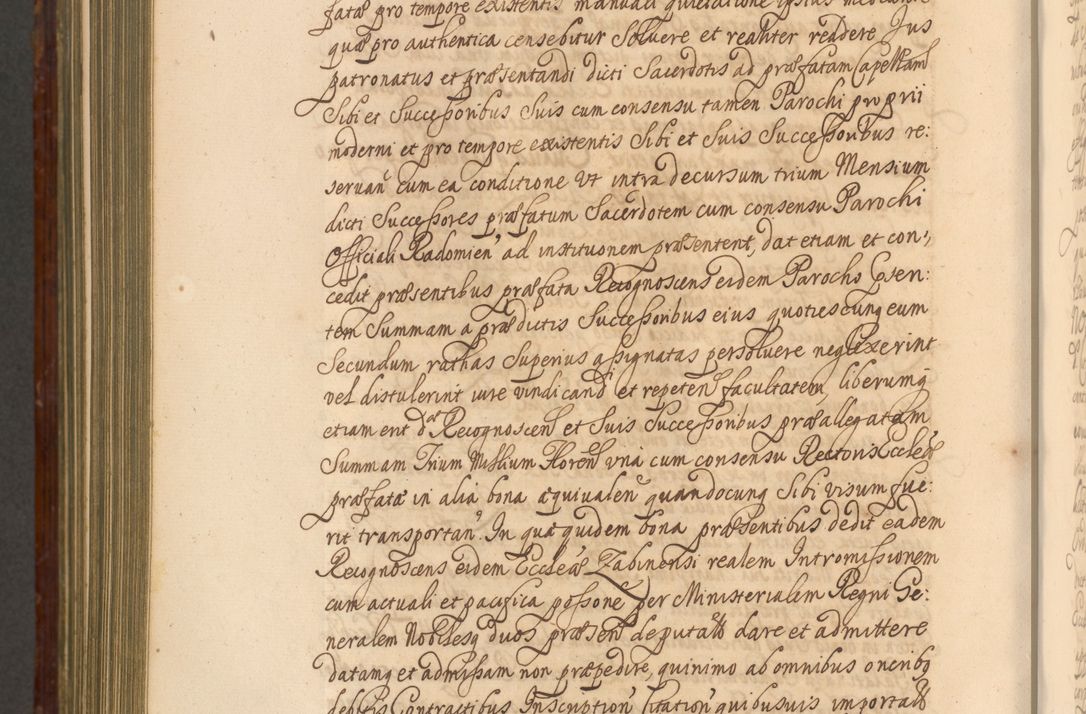 fatæ pro tempore existentis manuali quietatione ipsius mediante
quæ pro authentica censebitur Soluere et realiter reddere Jus
patronatus et præsentandi dicti Sacerdotis ad præfatam Capellam
Sibi et Successoribus Suis cum consensu tamen Parochi proprii
moderni et pro tempore existentis Sibi et Suis Successoribus re:
seruan cum ea conditione Vt intra decursum trium Mensium
dicti Successores præfatum Sacerdotem cum consensu Parochi
Officiali Radomien ad instituonem præsentent, dat etiam et con:
cedit præsentibus præfata Recognoscens eidem Parocho Even:
tem Summam a prædictis Successoribus eius quotiescunq eum
Secundum rathas Superius assignatas persoluere neglexerint
vel distulerint iure vindicandi et repeten facultatem, liberumq
etiam erit dæ Recognoscen et Suis Successoribus præallegatam
Summam Trium Millium Floren vna cum consensu Rectoris Eccleæ
præfatæ in alia bona æquivalen quandocunq Sibi visum fue:
rit transportan. In quæ quidem bona præsentibus dedit eadem
Recognoscens eidem Eccleæ Zabinensi realem Intromissionem
cum actuali et pacifica possone per Ministerialem Regni Ge:
neralem Noblesq duos præsen deputatt dare et admittere
datamq et admissam non præpedire, quinimo ab omnibus oneribq
debitis Contractibus Inscription Citation quibusuis importatt